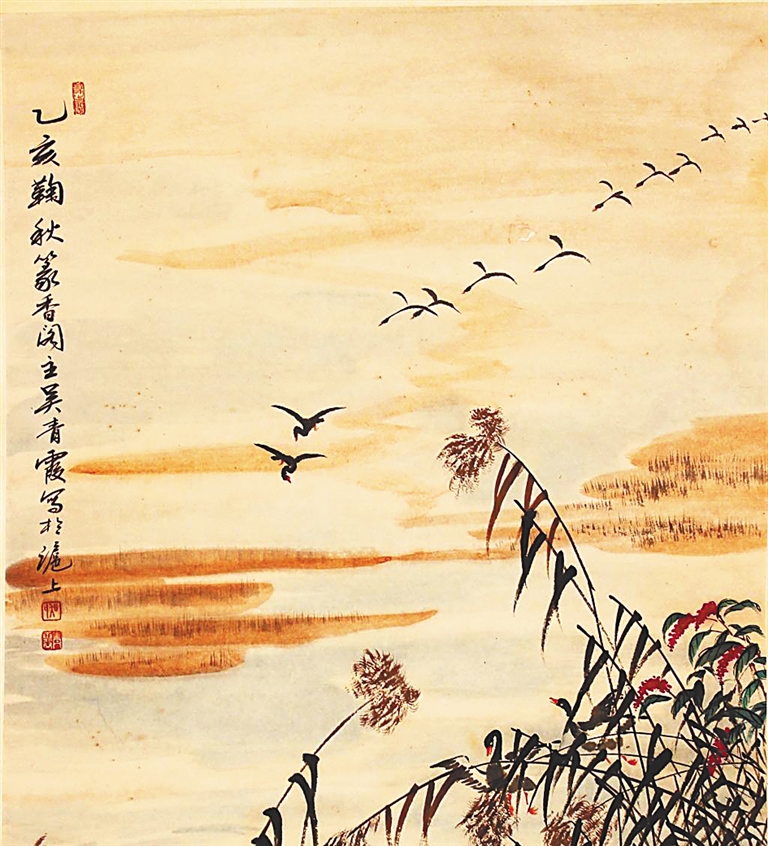 乙亥鞠秋篆香阁主吴青霞写於沪上